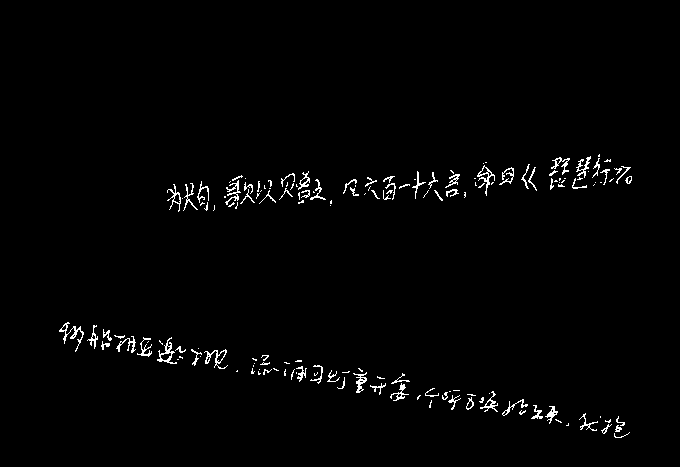 为长句,歌以赠之,凡六百一十六言,命曰《琵琶行》。
移船相近邀相见,添酒回灯重开宴,千呼万唤始出来,犹抱